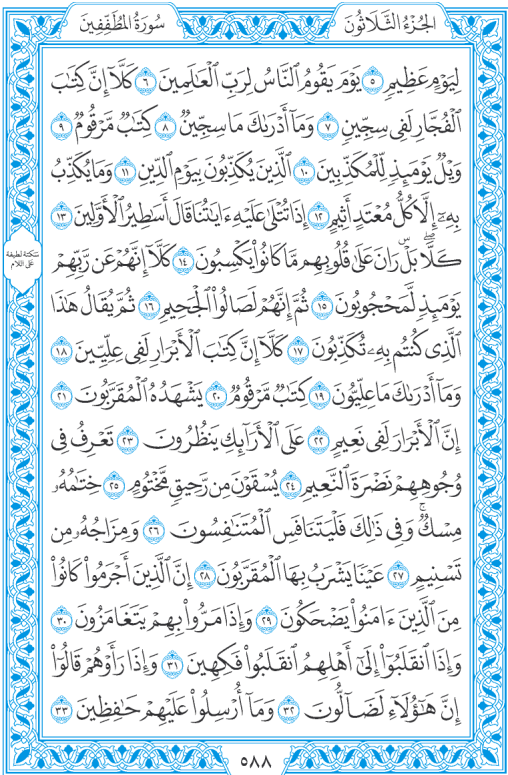 الجُزْءُ الثَّلَاثُونَ
سُورَةُ المُطَفِّفِينَ
لِيَوْمٍ عَظِيمٖ ٥ يَوْمَ يَقُومُ ٱلنَّاسُ لِرَبِّ ٱلْعَٰلَمِينَ ٦ كَلَّآ إِنَّ كِتَٰبَ
ٱلْفُجَّارِ لَفِى سِجِّينٖ ٧ وَمَآ أَدْرَىٰكَ مَا سِجِّينٞ ٨ كِتَٰبٞ مَّرْقُومٞ ٩
وَيْلٞ يَوْمَئِذٖ لِّلْمُكَذِّبِينَ ١٠ ٱلَّذِينَ يُكَذِّبُونَ بِيَوْمِ ٱلدِّينِ ١١ وَمَا يُكَذِّبُ
بِهِۦٓ إِلَّا كُلُّ مُعْتَدٍ أَثِيمٍ ١٢ إِذَا تُتْلَىٰ عَلَيْهِ ءَايَٰتُنَا قَالَ أَسَٰطِيرُ ٱلْأَوَّلِينَ ١٣
كَلَّاۖ بَلْۜ رَانَ عَلَىٰ قُلُوبِهِم مَّا كَانُوا۟ يَكْسِبُونَ ١٤ كَلَّآ إِنَّهُمْ عَن رَّبِّهِمْ
يَوْمَئِذٖ لَّمَحْجُوبُونَ ١٥ ثُمَّ إِنَّهُمْ لَصَالُوا۟ ٱلْجَحِيمِ ١٦ ثُمَّ يُقَالُ هَٰذَا
ٱلَّذِى كُنتُم بِهِۦ تُكَذِّبُونَ ١٧ كَلَّآ إِنَّ كِتَٰبَ ٱلْأَبْرَارِ لَفِى عِلِّيِّينَ ١٨
وَمَآ أَدْرَىٰكَ مَا عِلِّيُّونَ ١٩ كِتَٰبٞ مَّرْقُومٞ ٢٠ يَشْهَدُهُ ٱلْمُقَرَّبُونَ ٢١
إِنَّ ٱلْأَبْرَارَ لَفِى نَعِيمٍ ٢٢ عَلَى ٱلْأَرَآئِكِ يَنظُرُونَ ٢٣ تَعْرِفُ فِى
وُجُوهِهِمْ نَضْرَةَ ٱلنَّعِيمِ ٢٤ يُسْقَوْنَ مِن رَّحِيقٖ مَّخْتُومٍ ٢٥ خِتَٰمُهُۥ
مِسْكٞۚ وَفِى ذَٰلِكَ فَلْيَتَنَافَسِ ٱلْمُتَنَٰفِسُونَ ٢٦ وَمِزَاجُهُۥ مِن
تَسْنِيمٍ ٢٧ عَيْنٗا يَشْرَبُ بِهَا ٱلْمُقَرَّبُونَ ٢٨ إِنَّ ٱلَّذِينَ أَجْرَمُوا۟ كَانُوا۟
مِنَ ٱلَّذِينَ ءَامَنُوا۟ يَضْحَكُونَ ٢٩ وَإِذَا مَرُّوا۟ بِهِمْ يَتَغَامَزُونَ ٣٠
وَإِذَا ٱنقَلَبُوٓا۟ إِلَىٰٓ أَهْلِهِمُ ٱنقَلَبُوا۟ فَكِهِينَ ٣١ وَإِذَا رَأَوْهُمْ قَالُوٓا۟
إِنَّ هَٰٓؤُلَآءِ لَضَآلُّونَ ٣٢ وَمَآ أُرْسِلُوا۟ عَلَيْهِمْ حَٰفِظِينَ ٣٣
سَكتة لطيفة
عَلى اللام
٥٨٨